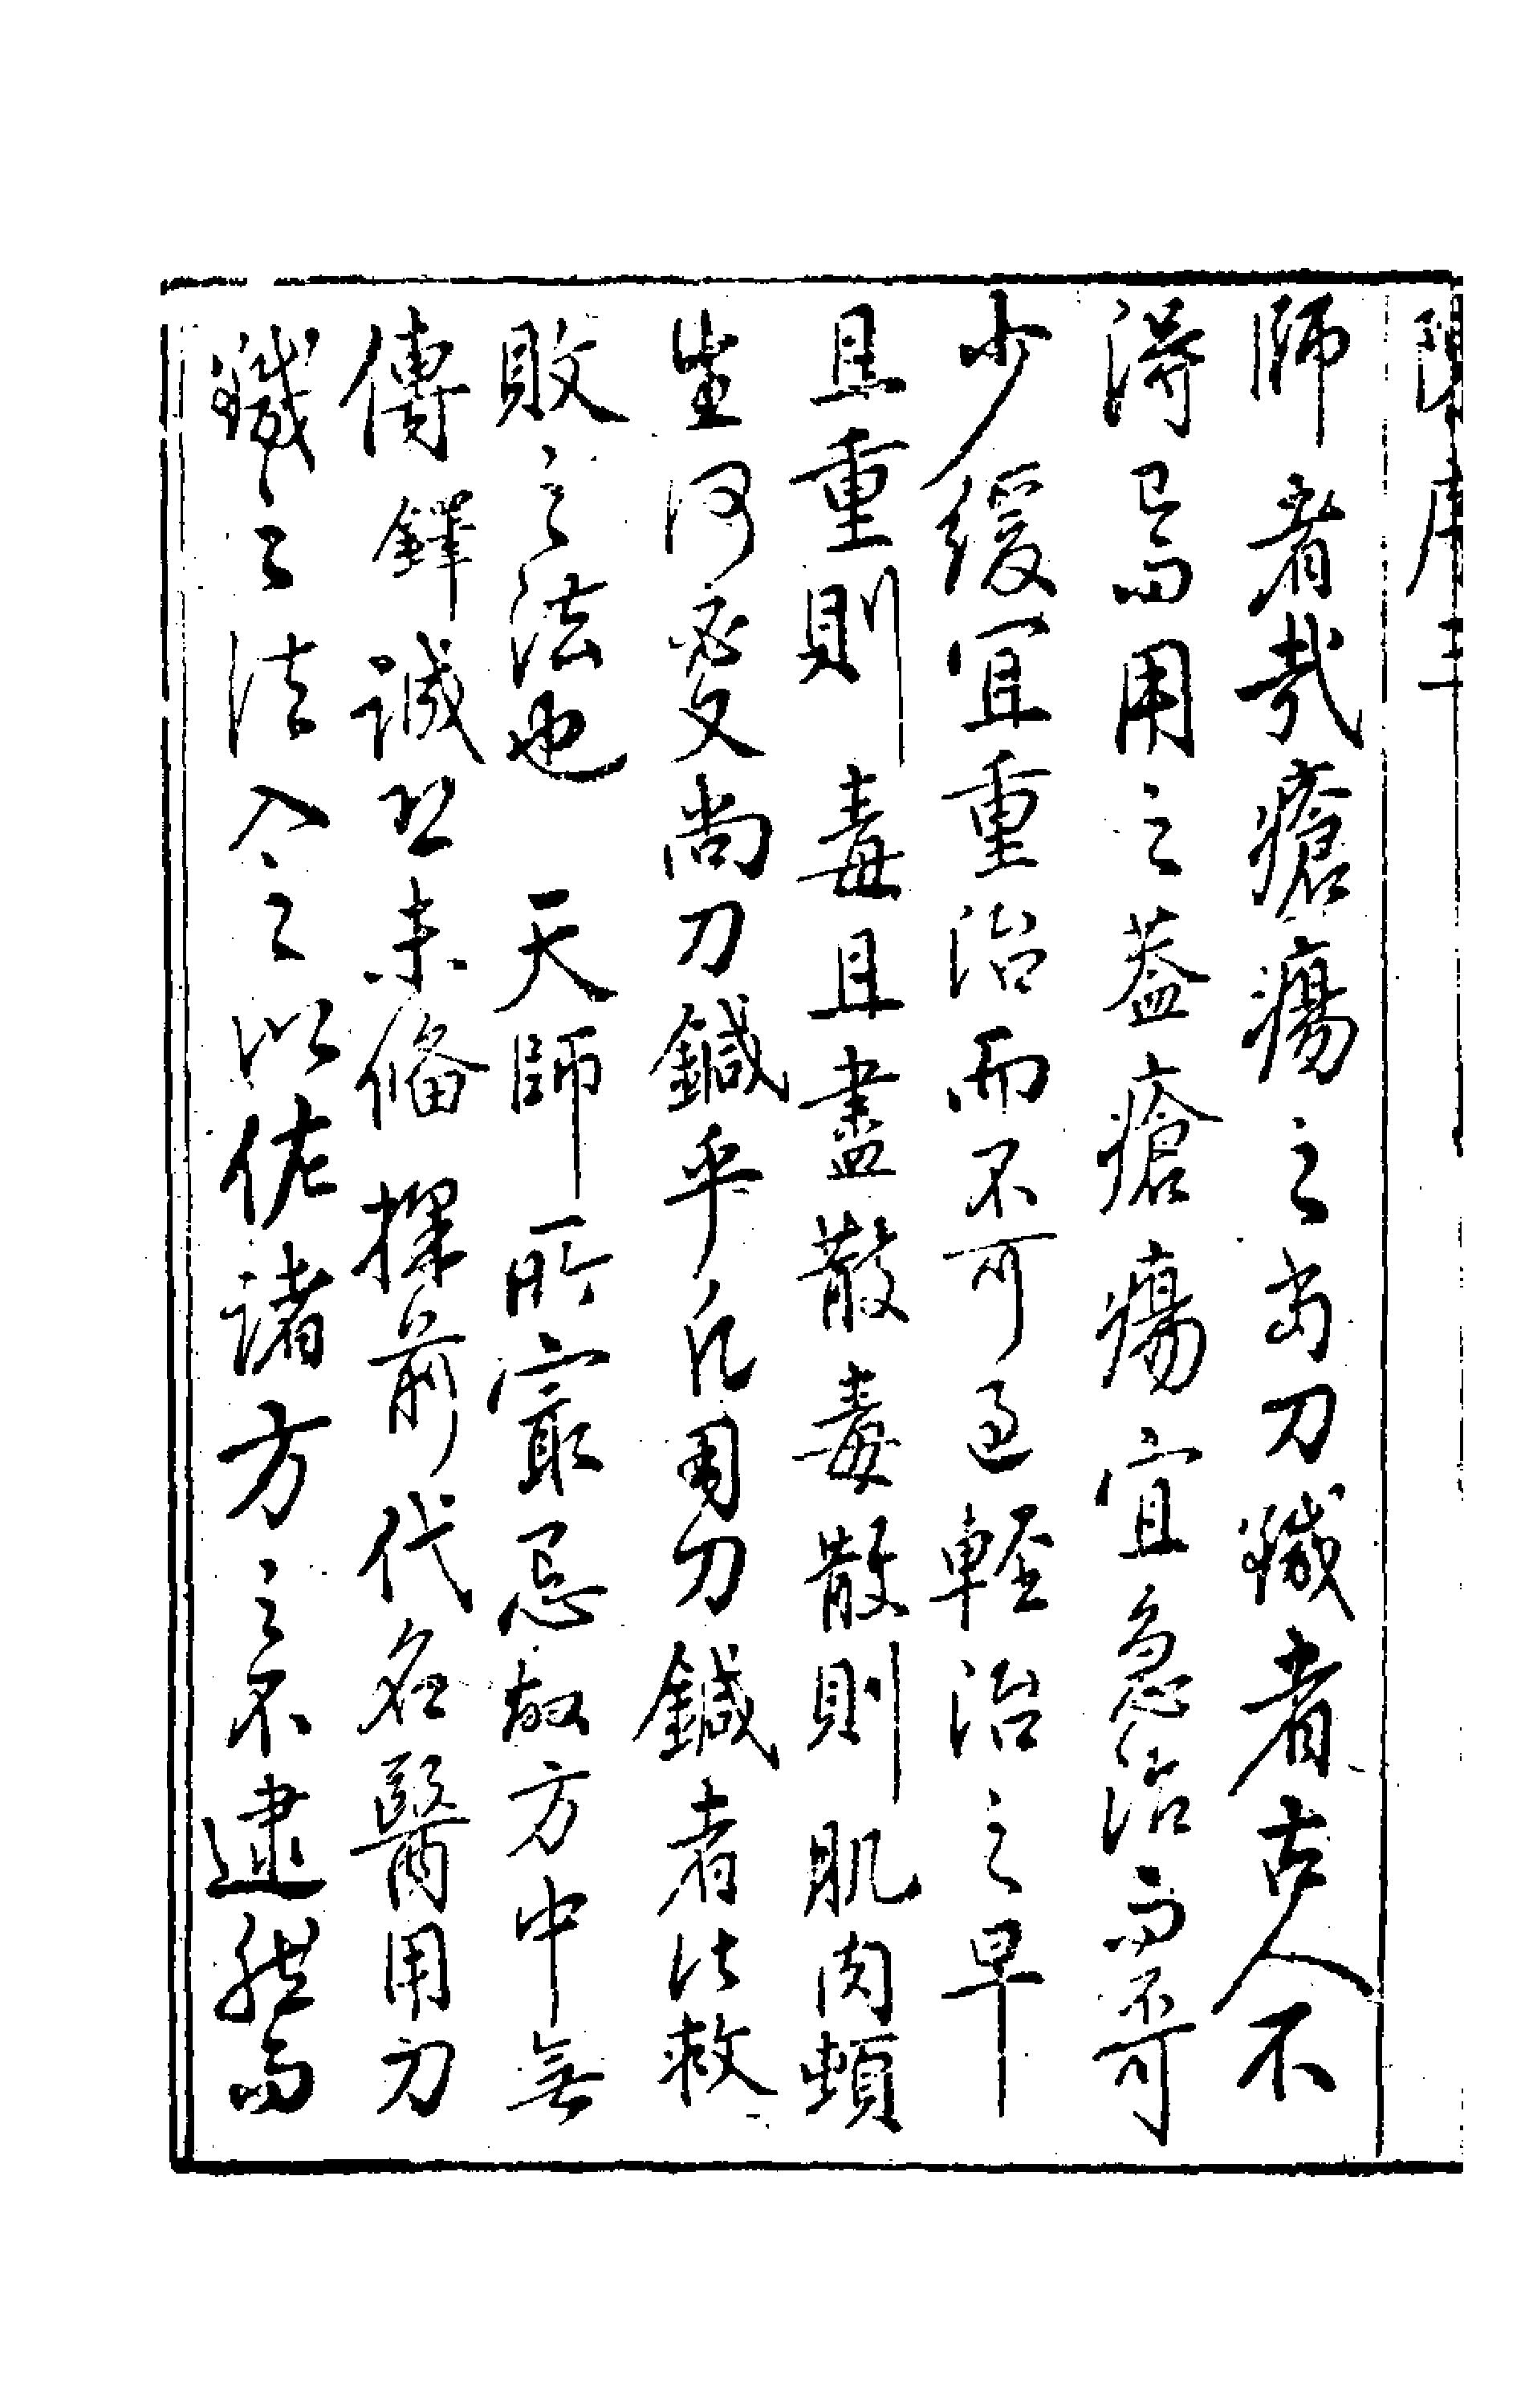 師者哉瘡瘍之尚刀鍼者古人不
得已而用之蓋瘡瘍宜急治而不可
少緩宜重治而不可過輕治之早
且重則毒且盡散毒散則肌肉頓
生何必更尚刀鍼乎凡用刀鍼者法救
敗之法也　天師所最忌故方中無
傳鐸誠恐未備採前代名醫用刀
鍼之法合之以佐諸方之不逮然而